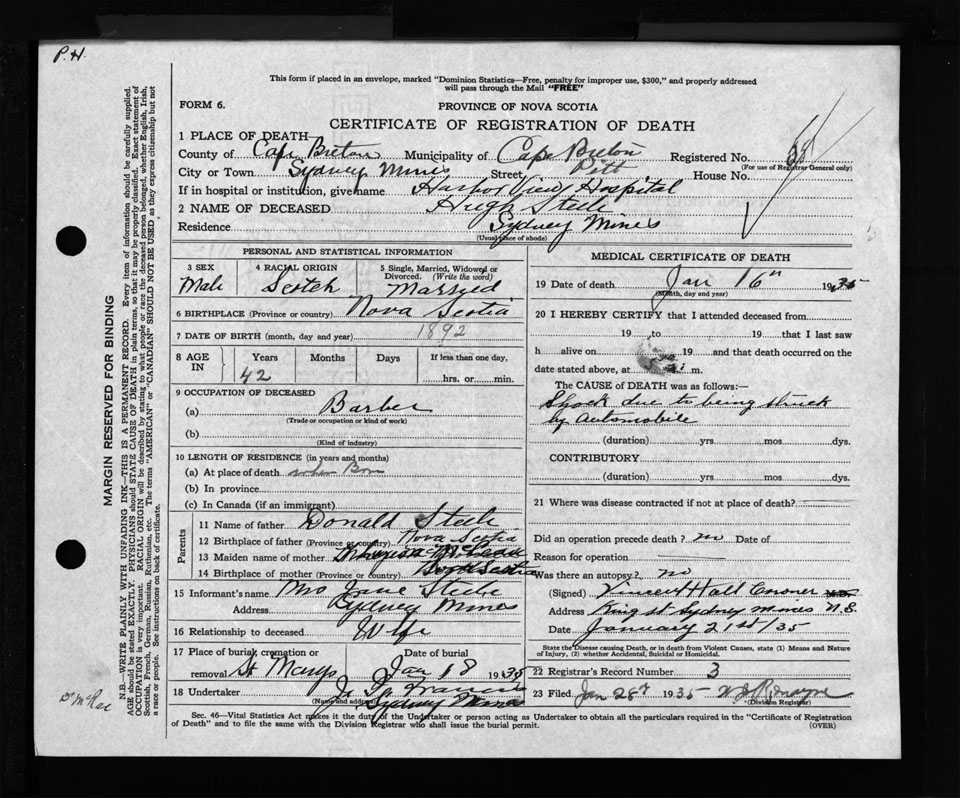 P.H.
This form if placed in an envelope, marked "Dominion Statistics—Free, penalty for improper use, $300," and properly addressed
will pass through the Mail "FREE"
FORM 6.
PROVINCE OF NOVA SCOTIA
CERTIFICATE OF REGISTRATION OF DEATH
1 PLACE OF DEATH
County of Cape Breton Municipality of Cape Breton Registered No. 28
(For use of Registrar General only)
City or Town Sydney Mines Street Pitt House No.
If in hospital or institution, give name Harbor View Hospital
2 NAME OF DECEASED Hugh Steele
Residence Sydney Mines
(Usual place of abode)
PERSONAL AND STATISTICAL INFORMATION
3 SEX Male
4 RACIAL ORIGIN Scotch
5 Single, Married, Widowed or Divorced. (Write the word) Married
6 BIRTHPLACE (Province or country) Nova Scotia
7 DATE OF BIRTH (month, day and year) 1892
8 AGE IN Years Months Days If less than one day,
42 hrs. or min.
9 OCCUPATION OF DECEASED
(a) Barber
(Trade or occupation or kind of work)
(b)
(Kind of industry)
10 LENGTH OF RESIDENCE (in years and months)
(a) At place of death when Born
(b) In province
(c) In Canada (if an immigrant)
Parents
11 Name of father Donald Steele
12 Birthplace of father (Province or country) Nova Scotia
13 Maiden name of mother
14 Birthplace of mother (Province or country) Scotia
15 Informant's name Mrs Jane Steele
Address Sydney Mines
16 Relationship to deceased Wife
17 Place of burial, cremation or removal St Marys Date of burial Jan 18 1935
18 Undertaker J.
(Name and address) Sydney Mines
MEDICAL CERTIFICATE OF DEATH
19 Date of death Jan 16th 1935
(Month, day and year)
20 I HEREBY CERTIFY that I attended deceased from
19 to 19 that I last saw
h alive on 19 and that death occurred on the
date stated above, at m.
The CAUSE OF DEATH was as follows:—
Shock due to being struck
by automobile
(duration) yrs. mos. dys.
CONTRIBUTORY
(duration) yrs. mos. dys.
21 Where was disease contracted if not at place of death?
Did an operation precede death? no Date of
Reason for operation
Was there an autopsy? no
(Signed) Vincent Hall Coroner
Address King st Sydney Mines N.S
Date January 21st/35
State the Disease causing Death, or in death from Violent Causes, state (1) Means and Nature
of Injury, (2) whether Accidental, Suicidal or Homicidal.
22 Registrar's Record Number 3
23 Filed Jan 28th 1935
(Division Registrar)
Sec. 46—Vital Statistics Act makes it the duty of the Undertaker or person acting as Undertaker to obtain all the particulars required in the "Certificate of Registration
of Death" and to file the same with the Division Registrar who shall issue the burial permit.
(OVER)
MARGIN RESERVED FOR BINDING
N.B.—WRITE PLAINLY WITH UNFADING INK—THIS IS A PERMANENT RECORD. Every item of information should be carefully supplied.
AGE should be stated EXACTLY. PHYSICIANS should STATE CAUSE OF DEATH in plain terms, so that it may be properly classified. Exact statement of
OCCUPATION is very important. RACIAL ORIGIN will be described by stating to what people or race the deceased person belonged, whether English, Irish,
Scottish, French, German, Russian, Ruthenian, etc. The terms "AMERICAN" or "CANADIAN" SHOULD NOT BE USED as they express citizenship but not
a race or people. See instructions on back of certificate.
Dr McRae